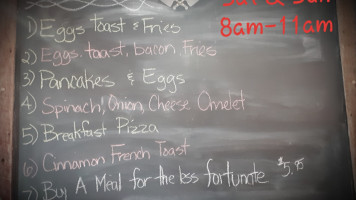 8am-11am
1) Eggs Toast & Fries
2) Eggs. toast, bacon, Fries
3) Pancakes & Eggs
4) Spinach, Onion, Cheese Omelet
5) Breakfast Pizza
6) Cinnamon French Toast
7) Buy A Meal for the less fortunate $5.95